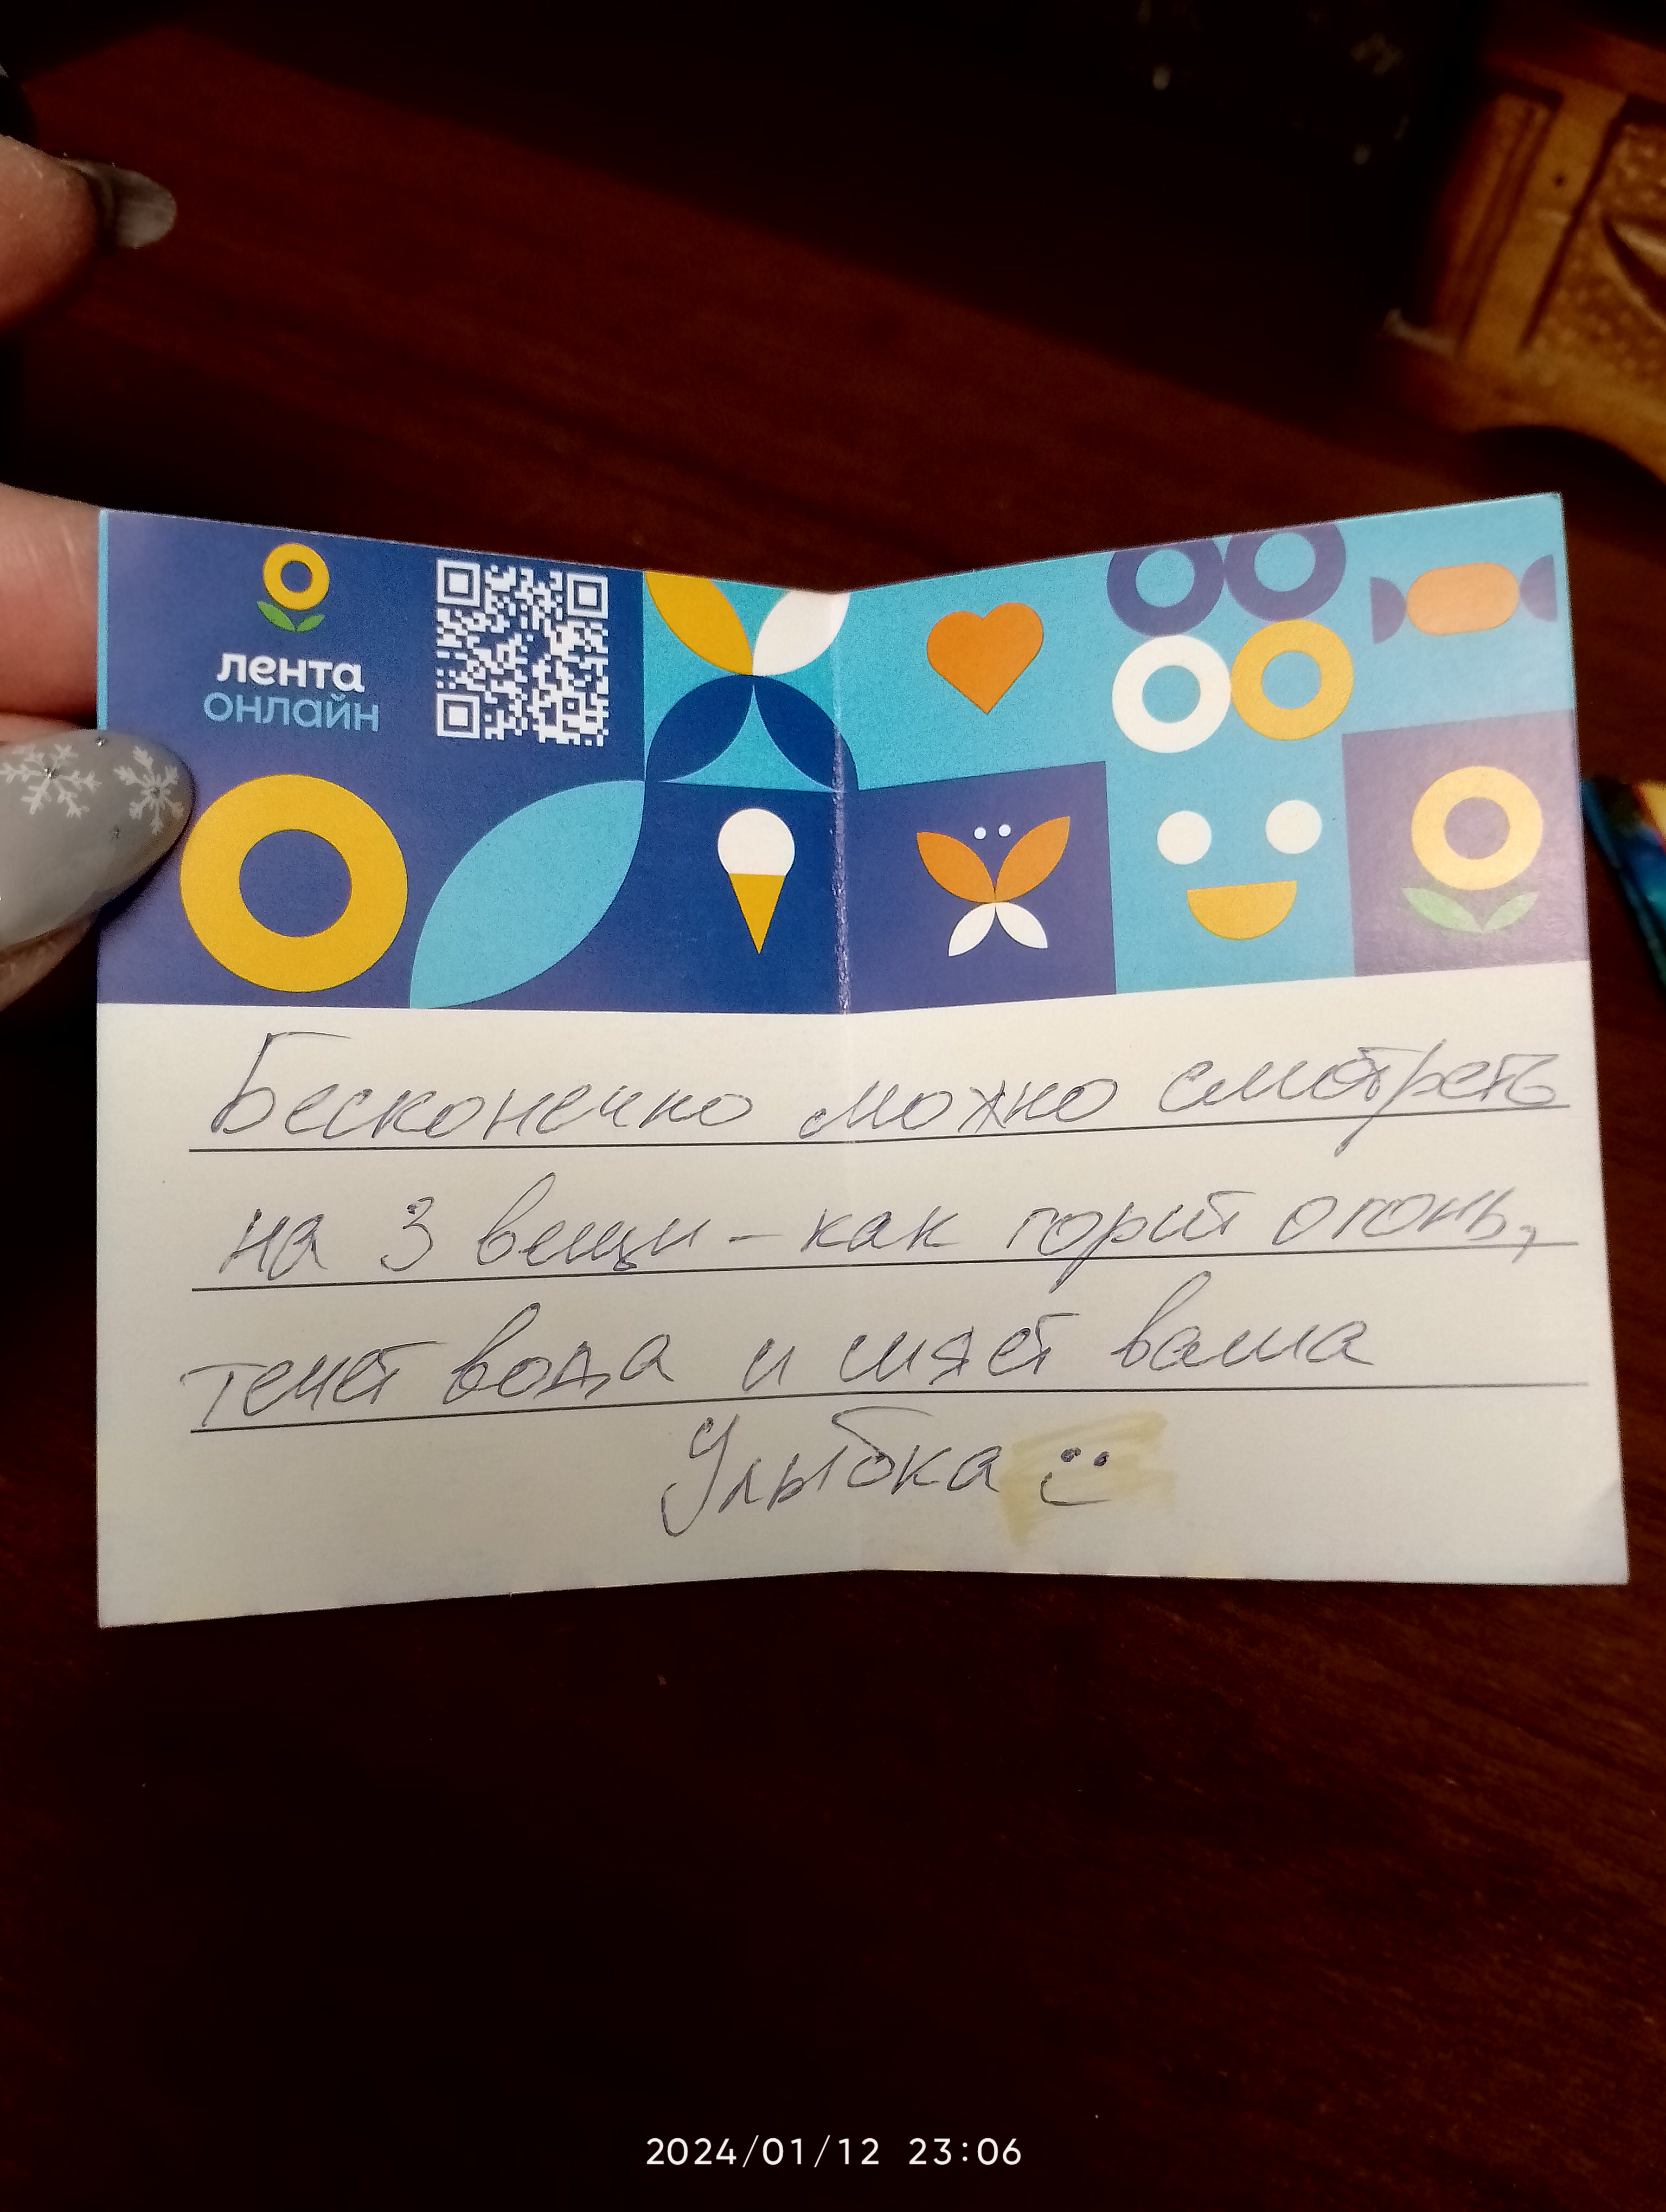 лента
онлайн
Бесконечно можно смотреть
на 3 вещи - как горит огонь,
течет вода и сияет ваша
Улыбка
2024/01/12 23:06